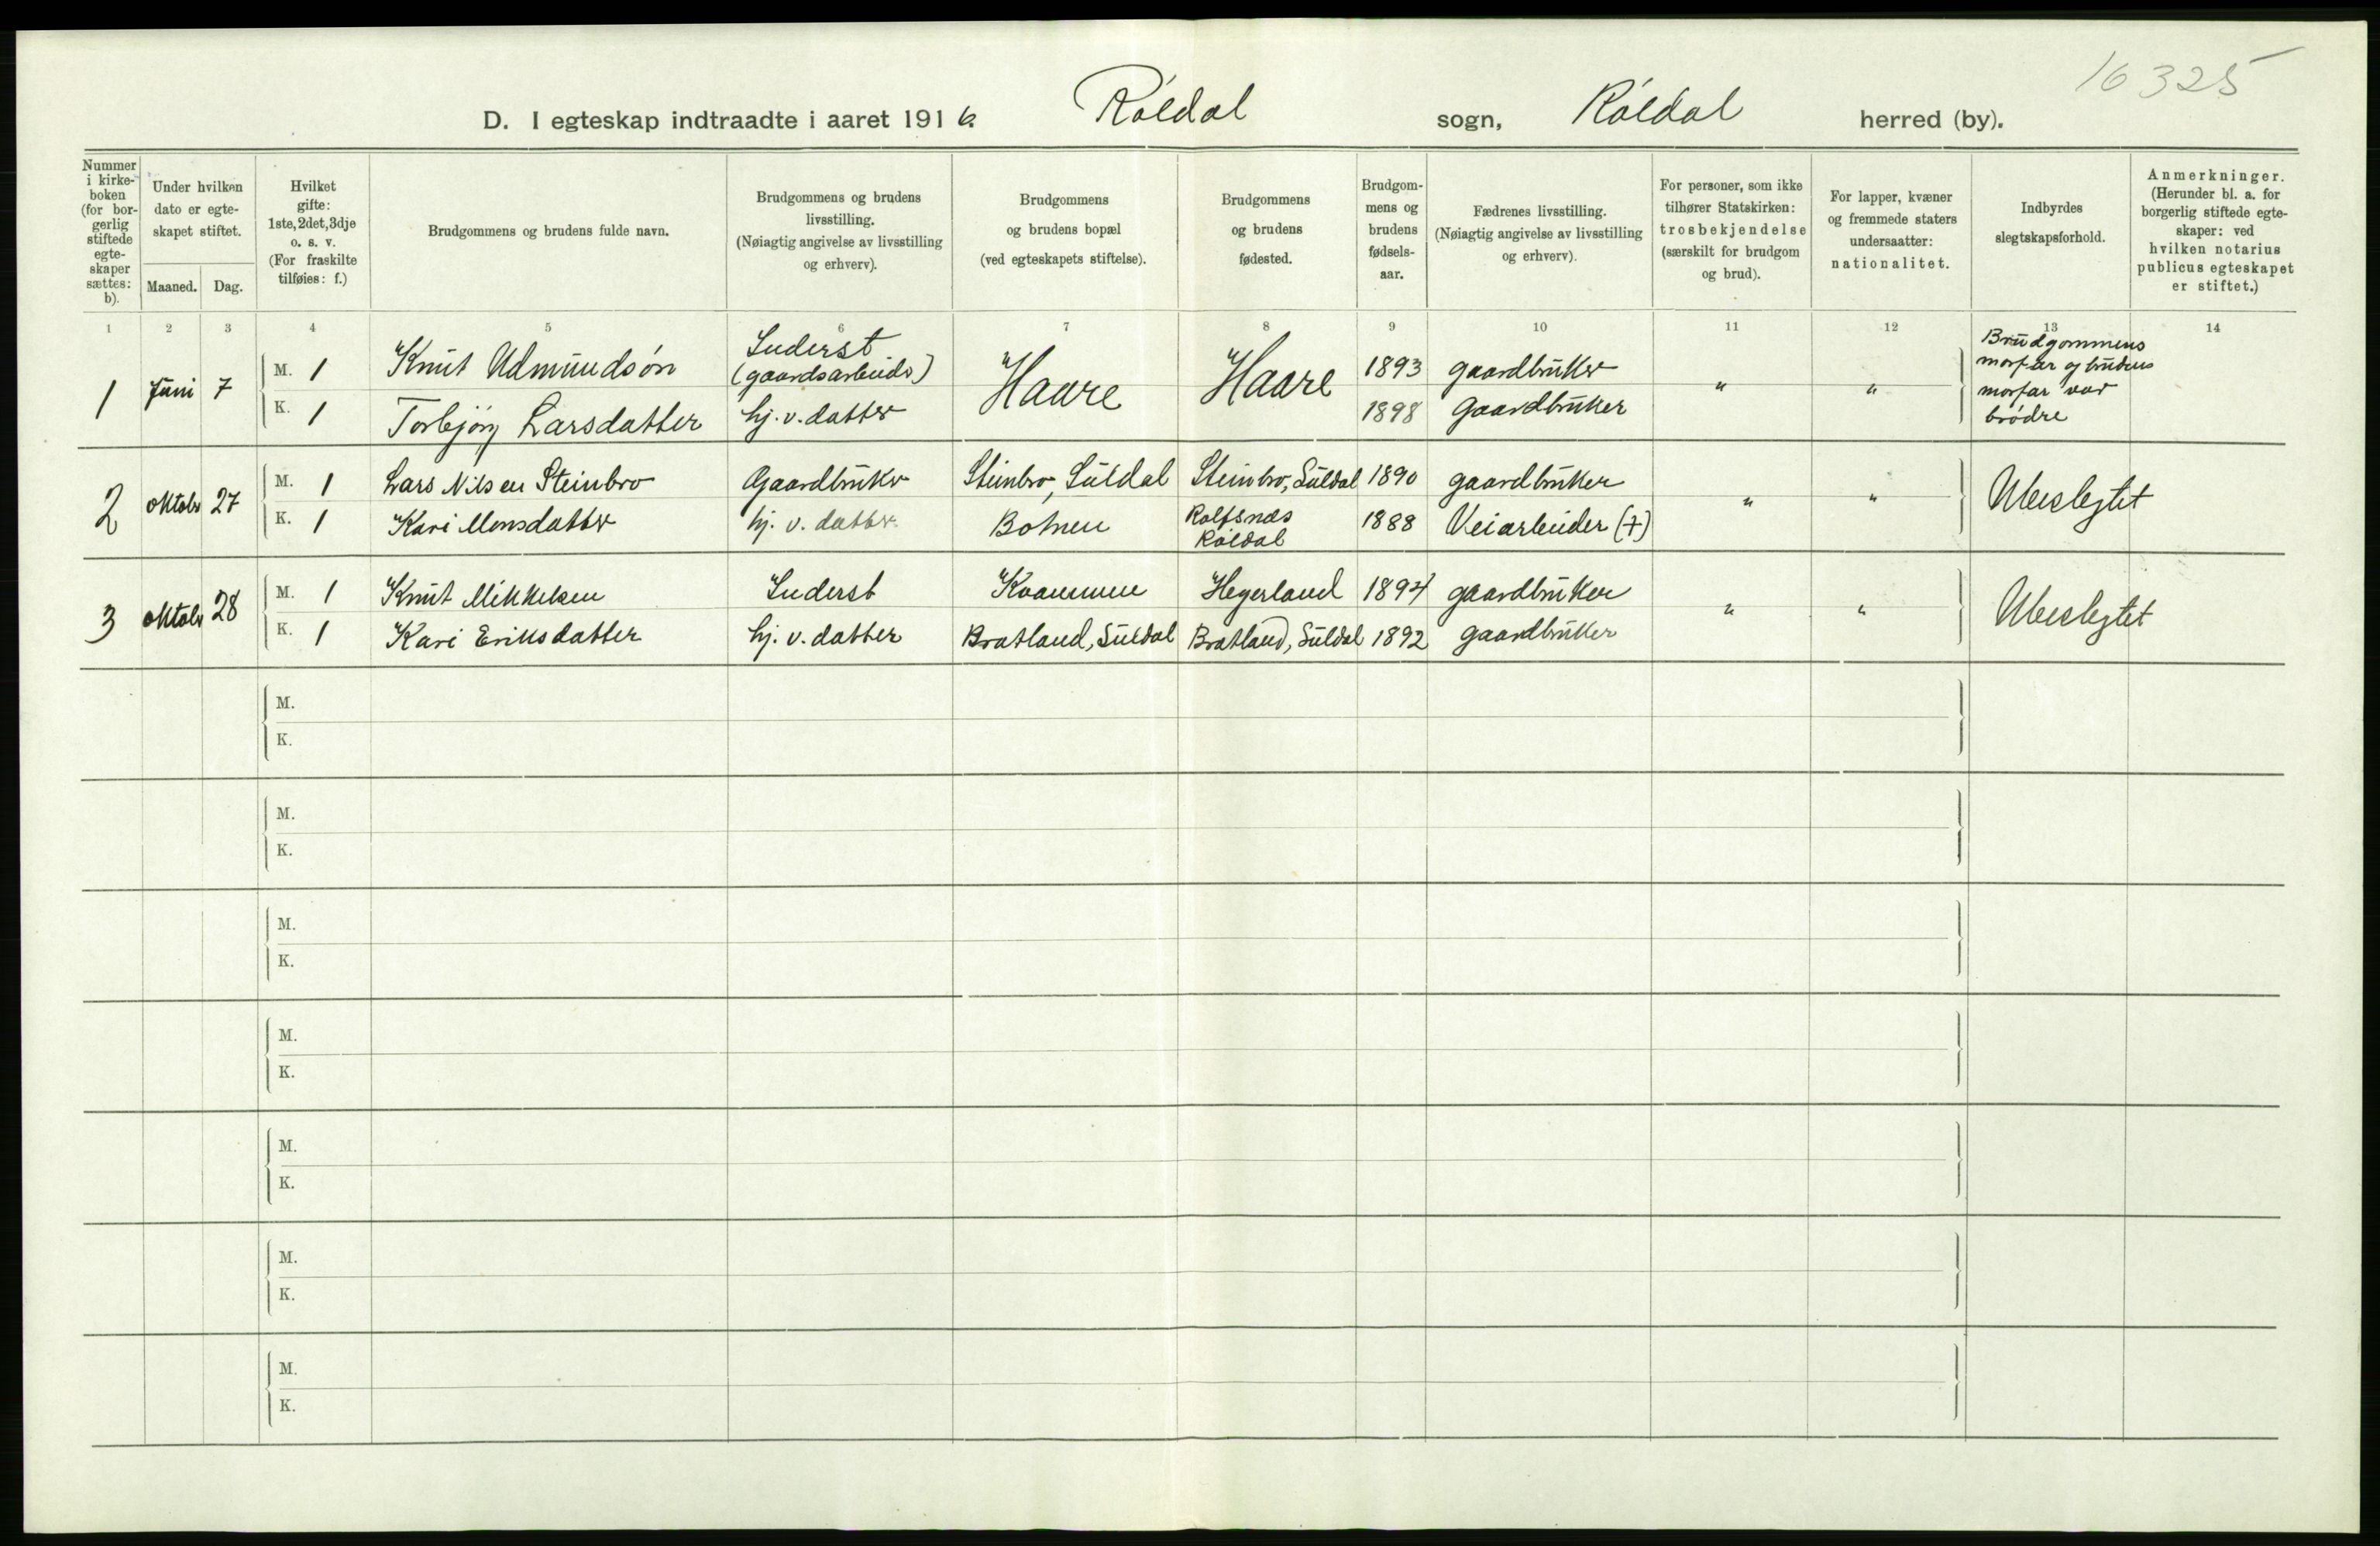 16325
D. I egteskap indtraadte i aaret 1916. Röldal sogn, Röldal herred (by).
Nummer i kirke- boken (for bor- gerlig stiftede egte- skaper sættes: b).
Under hvilken dato er egte- skapet stiftet.
Maaned. Dag.
Hvilket gifte: 1ste, 2det, 3dje o. s. v. (For fraskilte tilføies: f.)
Brudgommens og brudens fulde navn.
Brudgommens og brudens livsstilling. (Nøiagtig angivelse av livsstilling og erhverv).
Brudgommens og brudens bopæl (ved egteskapets stiftelse).
Brudgommens og brudens fødested.
Brudgom- mens og brudens fødsels- aar.
Fædrenes livsstilling. (Nøiagtig angivelse av livsstilling og erhverv).
For personer, som ikke tilhører Statskirken: trosbekjendelse (særskilt for brudgom og brud).
For lapper, kvæner og fremmede staters undersaatter: nationalitet.
Indbyrdes slegtskapsforhold.
Anmerkninger. (Herunder bl. a. for borgerlig stiftede egte- skaper: ved hvilken notarius publicus egteskapet er stiftet.)
1 2 3 4 5 6 7 8 9 10 11 12 13 14
1 Juni 7 M. 1 Knut Udmundsön Inderst (gaardsarbeider) Haare Haare 1893 gaardbruker " " Brudgommens morfar og brudens morfar var brödre
K. 1 Torbjörg Larsdatter hj. v. datter 1898 Gaardbruker
2 oktober 27 M. 1 Lars Nilsen Steinbro Gaardbruker Steinbro, Suldal Steinbro, Suldal 1890 gaardbruker " " Ubeslegtet
K. 1 Kari Monsdatter hj. v. datter Botnen Rolfsnæs Röldal 1888 Veiarbeider (+)
3 oktober 28 M. 1 Knut Mikkelsen Inderst Hegerland 1894 gaardbruker " " Ubeslegtet
K. 1 Kari Eriksdatter hj. v. datter Bratland, Suldal Bratland, Suldal 1892 gaardbruker
M.
K.
M.
K.
M.
K.
M.
K.
M.
K.
M.
K.
M.
K.